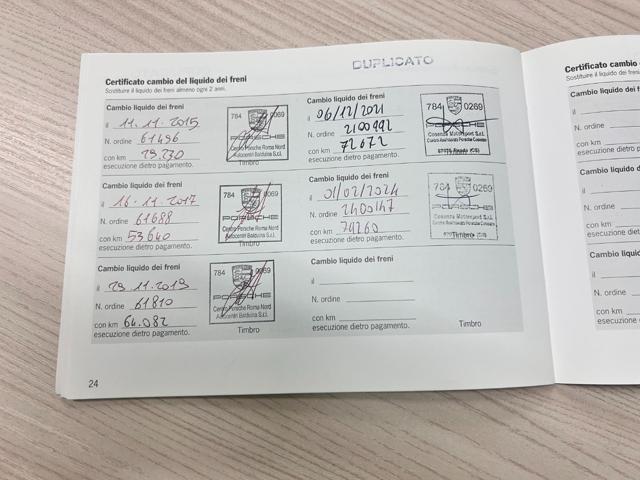 DUPLICATO
Certificato cambio del liquido dei freni
Sostituire il liquido dei freni almeno ogni 2 anni.
Cambio liquido dei freni
il 11.11.2015
N. ordine 61496
con km 29.230
esecuzione dietro pagamento.
784 0069
PORSCHE
Centro Porsche Roma Nord
Autocentri Balduina S.r.l.
Timbro
Cambio liquido dei freni
il 16.11.2017
N. ordine 61688
con km 53640
esecuzione dietro pagamento.
784 0069
PORSCHE
Centro Porsche Roma Nord
Autocentri Balduina S.r.l.
Timbro
Cambio liquido dei freni
il 29.11.2019
N. ordine 61810
con km 64.082
esecuzione dietro pagamento.
784 0069
PORSCHE
Centro Porsche Roma Nord
Autocentri Balduina S.r.l.
Timbro
Cambio liquido dei freni
il 06/12/2021
N. ordine 2100992
con km 72672
esecuzione dietro pagamento.
784 0269
PORSCHE
Cosenza Motorsport S.r.l.
Centro Assistenza Porsche Cosenza
Cambio liquido dei freni
il 01/02/2024
N. ordine 2400147
con km 74260
esecuzione dietro pagamento.
784 0269
PORSCHE
Cosenza Motorsport S.r.l.
Centro Assistenza Porsche Cosenza
Timbro
Cambio liquido dei freni
il
N. ordine
con km
esecuzione dietro pagamento.
Timbro
24
Certificato cambio
Sostituire il liquido dei fren
Cambio liquido dei f
il
N. ordine
con km
esecuzione dietro p
Cambio liquido dei
il
N. ordine
con km
esecuzione dietro
Cambio liquido de
il
N. ordine
con km
esecuzione dietr